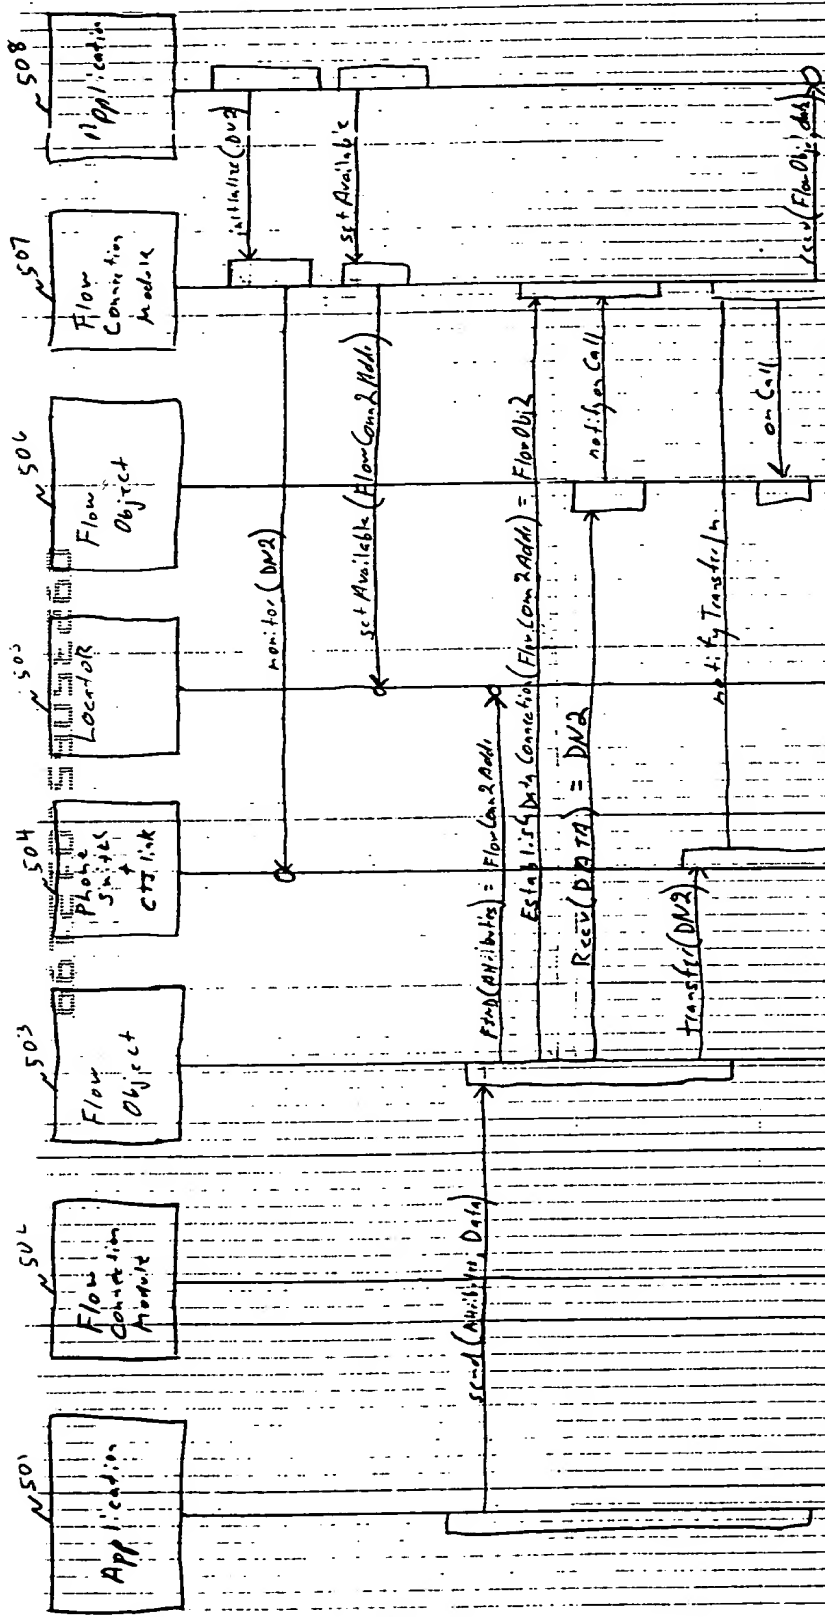 501
Application
502
Flow
Connection
Module
503
Flow
Object
504
Phone
Switch
+
CTI link
505
LocatoR
506
Flow
Object
507
Flow
Connection
Module
508
Application
initialize(DN2)
monitor(DN2)
set Available
set Available (FlowConn2Addr)
send (Attributes, Data)
Find(Attributes) = FlowConn2Addr
Establish Data Connection (FlowConn2Addr) = FlowObj2
Recv(DATA) = DN2
notify onCall
transfer(DN2)
notify Transfer In
onCall
recv(FlowObj, data)